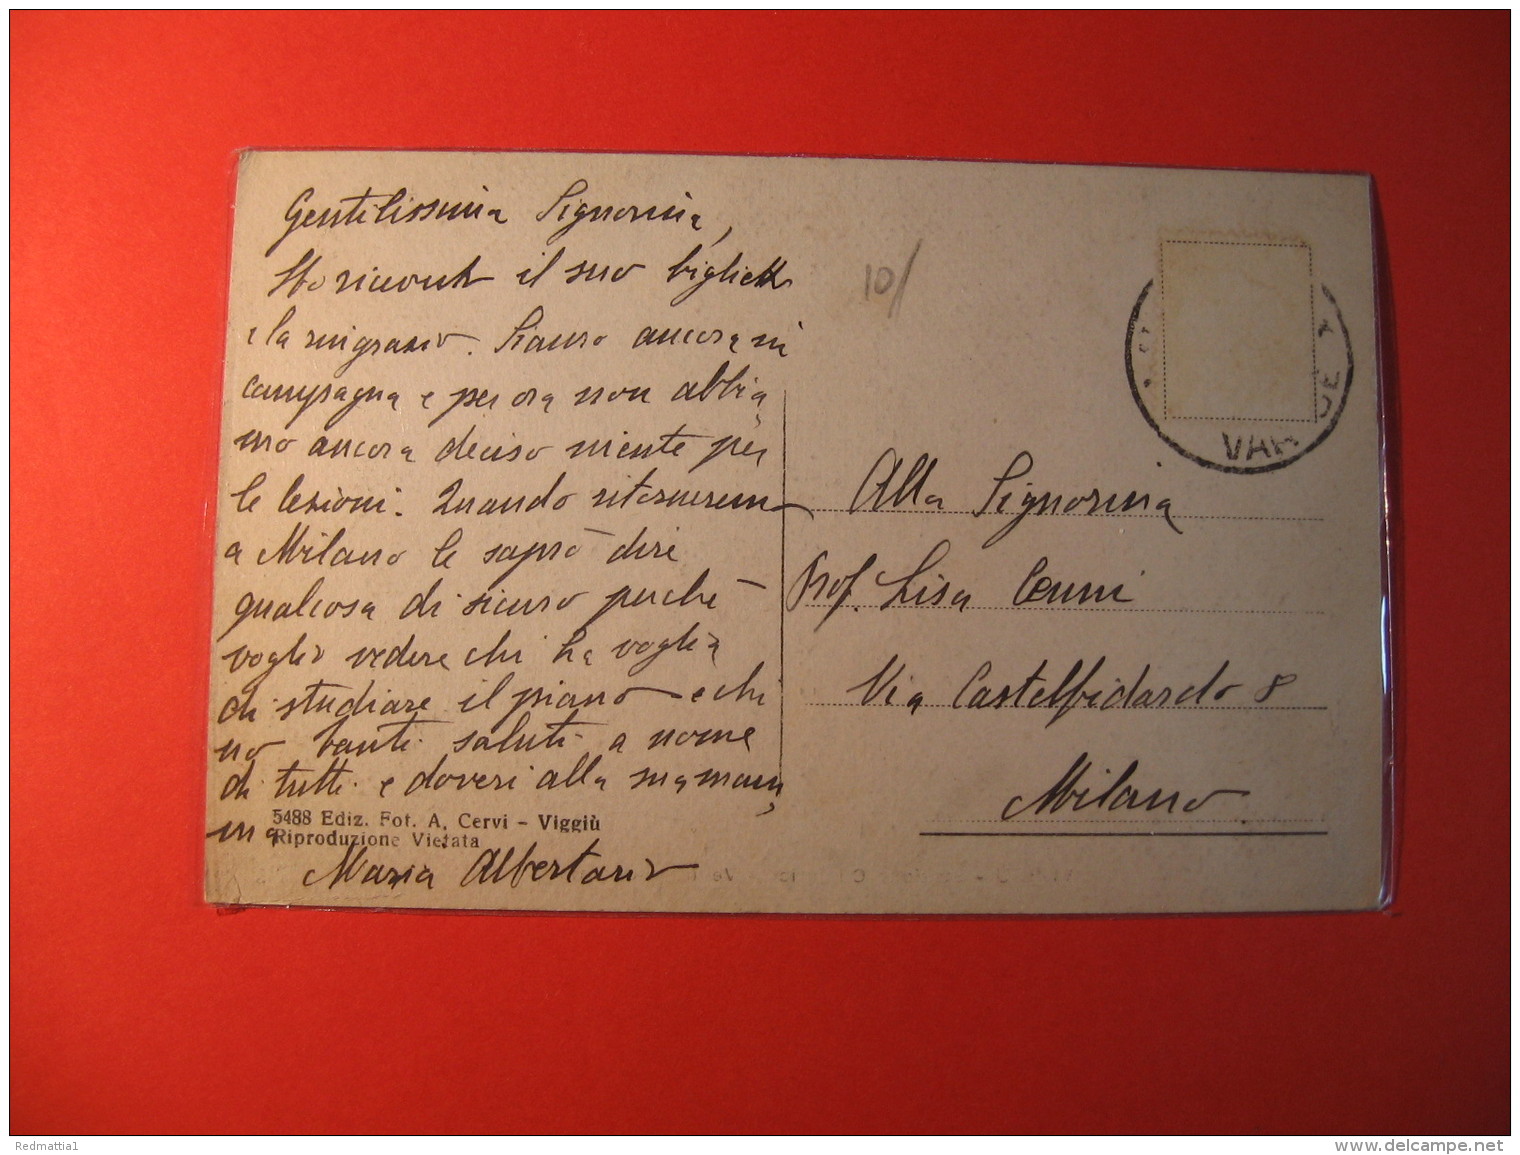 Gentilissima Signorina,
Ho ricevuto il suo biglietto
e la ringrazio. Siamo ancora in
campagna e per ora non abbia
mo ancora deciso niente per
le lezioni. Quando ritorneremo
a Milano le saprò dire
qualcosa di sicuro perchè
voglio vedere chi ha voglia
di studiare il piano e chi
no tanti saluti a nome
di tutti e doveri alla sua mam
ma
Maria Albertario
5488 Ediz. Fot. A. Cervi - Viggiù
Riproduzione Vietata
10/
VAR
Alla Signorina
Prof. Lisa Cenni
Via Castelfidardo 8
Milano
Redmattia1
www.delcampe.net